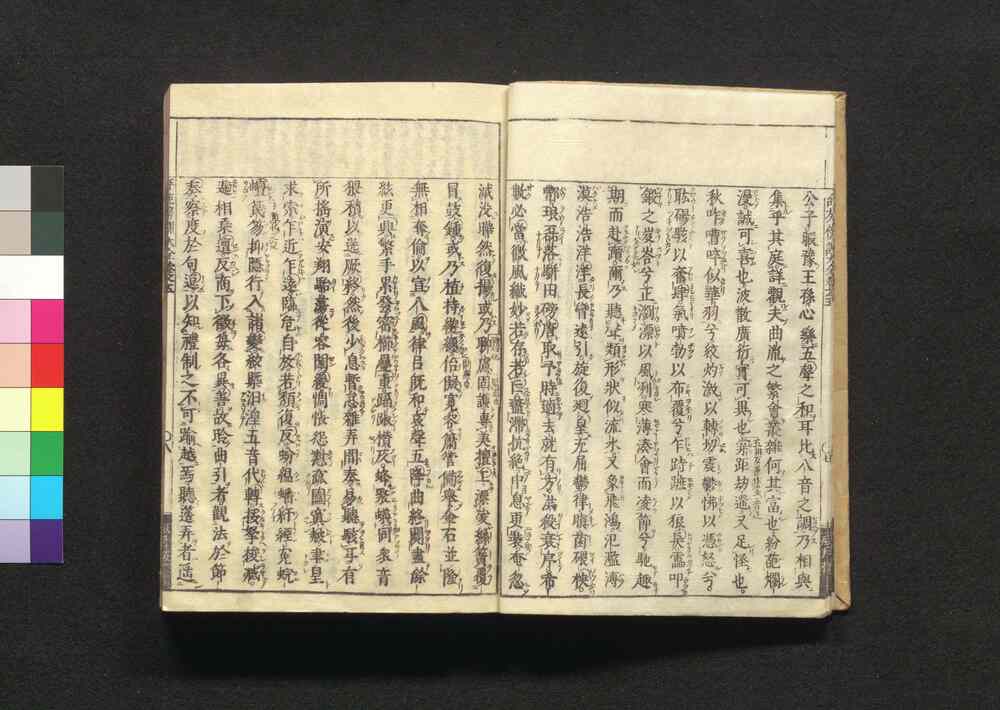 公子暇豫王孫心樂五聲之和耳比八音之調乃相與
集乎其庭詳觀夫曲胤之繁會叢雜何其富也紛葩爛
漫誠可喜也波散廣衍實可異也牚距劫遌又足怪也
啾咋嘈啐似華羽兮絞灼激以轉切震鬱怫以憑怒兮
耾碭駭以奮肆氣噴勃以布覆兮乍跱蹠以狼戾靁叩
鍛之岌峇兮正瀏漂以風冽寒薄湊會而凌節兮馳趣
期而赴躓爾乃聽聲類形狀似流水又象飛鴻氾濫溥
漠浩浩洋洋長矕遠引旋復迴皇充屈鬱律瞋菌碨柍
酆琅磊落駢田磅唐取予時適去就有方洪殺衰序希
數必當微風纖妙若存若亡藎滯抗絕中息更裝奄忽
滅沒曄然復揚或乃聊慮固護專美擅工漂凌絲簧覆
冒鼓鍾或乃植持縼纆佁儗寬容簫管備舉金石並隆
無相奪倫以宣八風律呂既和哀聲五降曲終闋盡餘
絃更興繁手累發密櫛疊重踾踧攢仄蜂聚蟻同衆音
猥積以送厥終然後少息暫怠雜弄間奏易聽駭耳有
所搖演安翔駘蕩從容闡緩惆悵怨懟窳圔窴赧聿皇
求索乍近乍遠臨危自放若頹復反蚡縕蟠紆緸冤蜿
蟺笢笏抑隱行入諸變絞概汨湟五音代轉挼拏捘臧
遞相乘邅反商下徵每各異善故聆曲引者觀法於節
奏察度於句逗以知禮制之不可踰越焉聽簉弄者遙